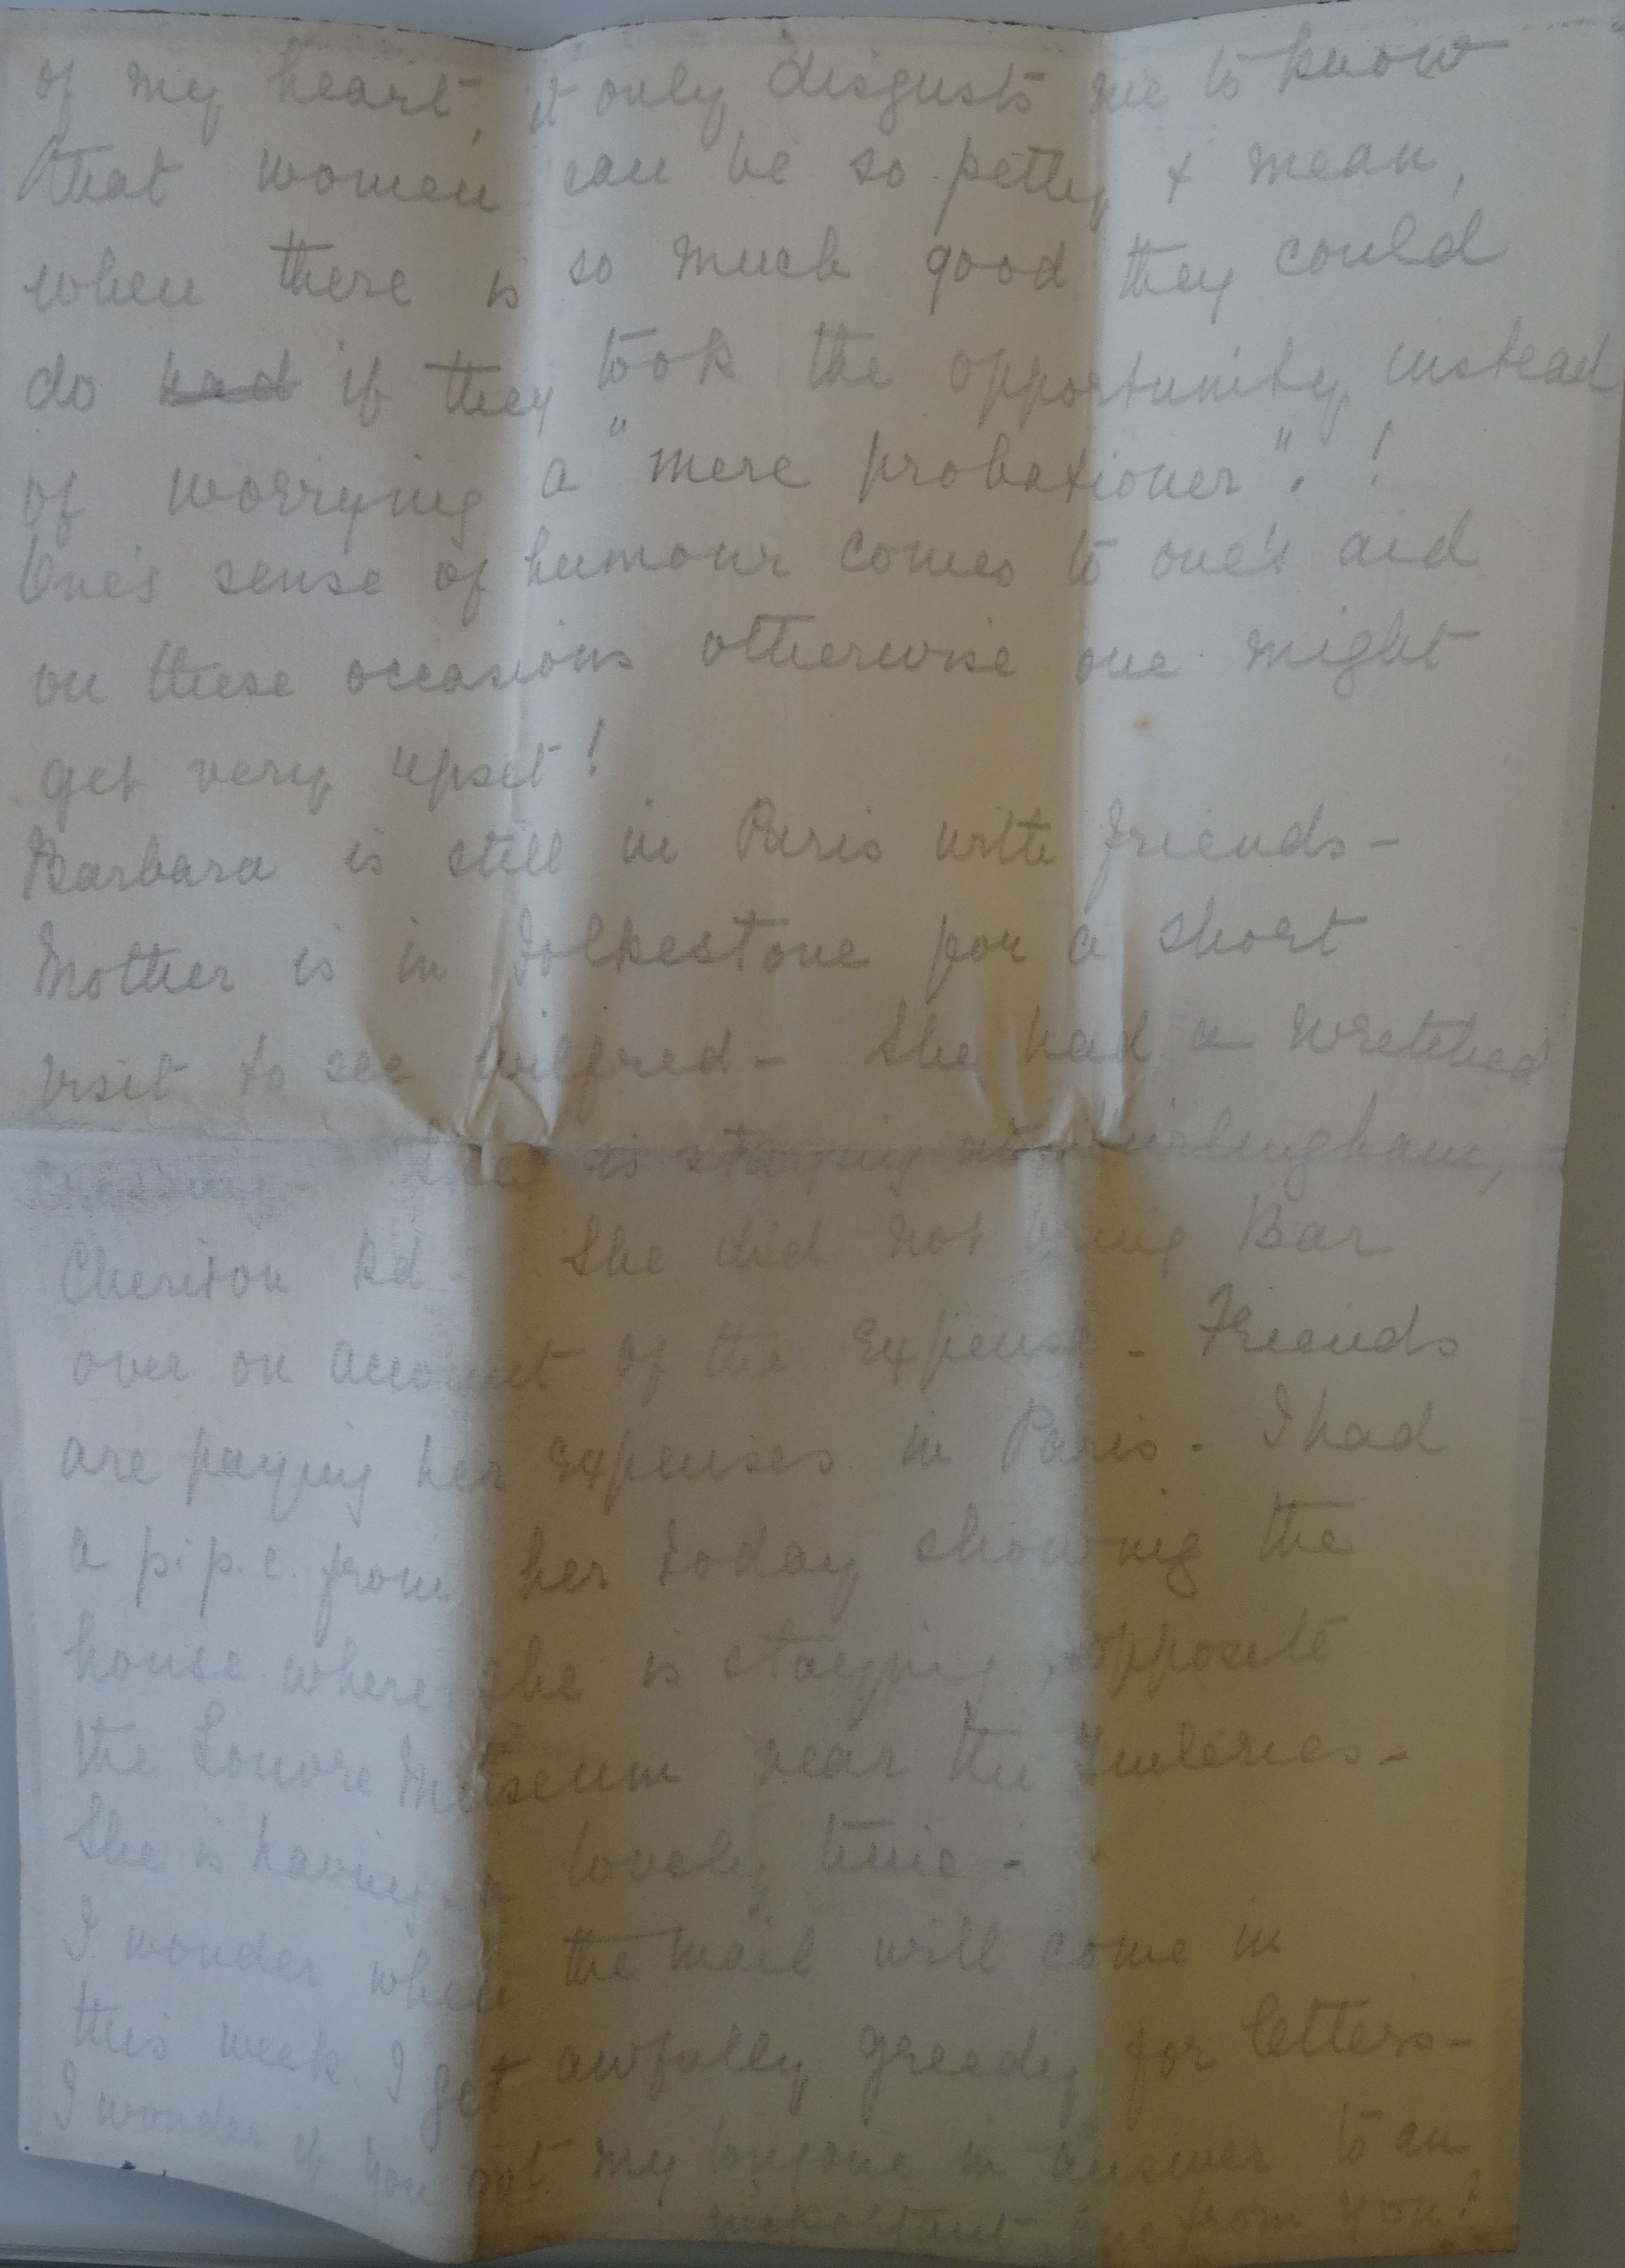 of my heart, it only disgusts me to know
that women can be so petty & mean,
when there is so much good they could
do had if they took the opportunity instead
of worrying a "mere probationer".!
One's sense of humour comes to one's aid
on these occasions otherwise one might
get very upset!
Barbara is still in Paris with friends -
Mother is in Folkestone for a short
visit to see Wilfred - She had a wretched
crossing - She is staying at
Cheriton Rd - She did not bring Bar
over on account of the Expense - Friends
are paying her expenses in Paris. I had
a p.p.c. from her today showing the
house where she is staying, opposite
the Louvre Museum near the Tuileries -
She is having a lovely time -
I wonder when the mail will come in
this week. I get awfully greedy for letters -
I wonder if you got my long one in answer to an
important one from you?